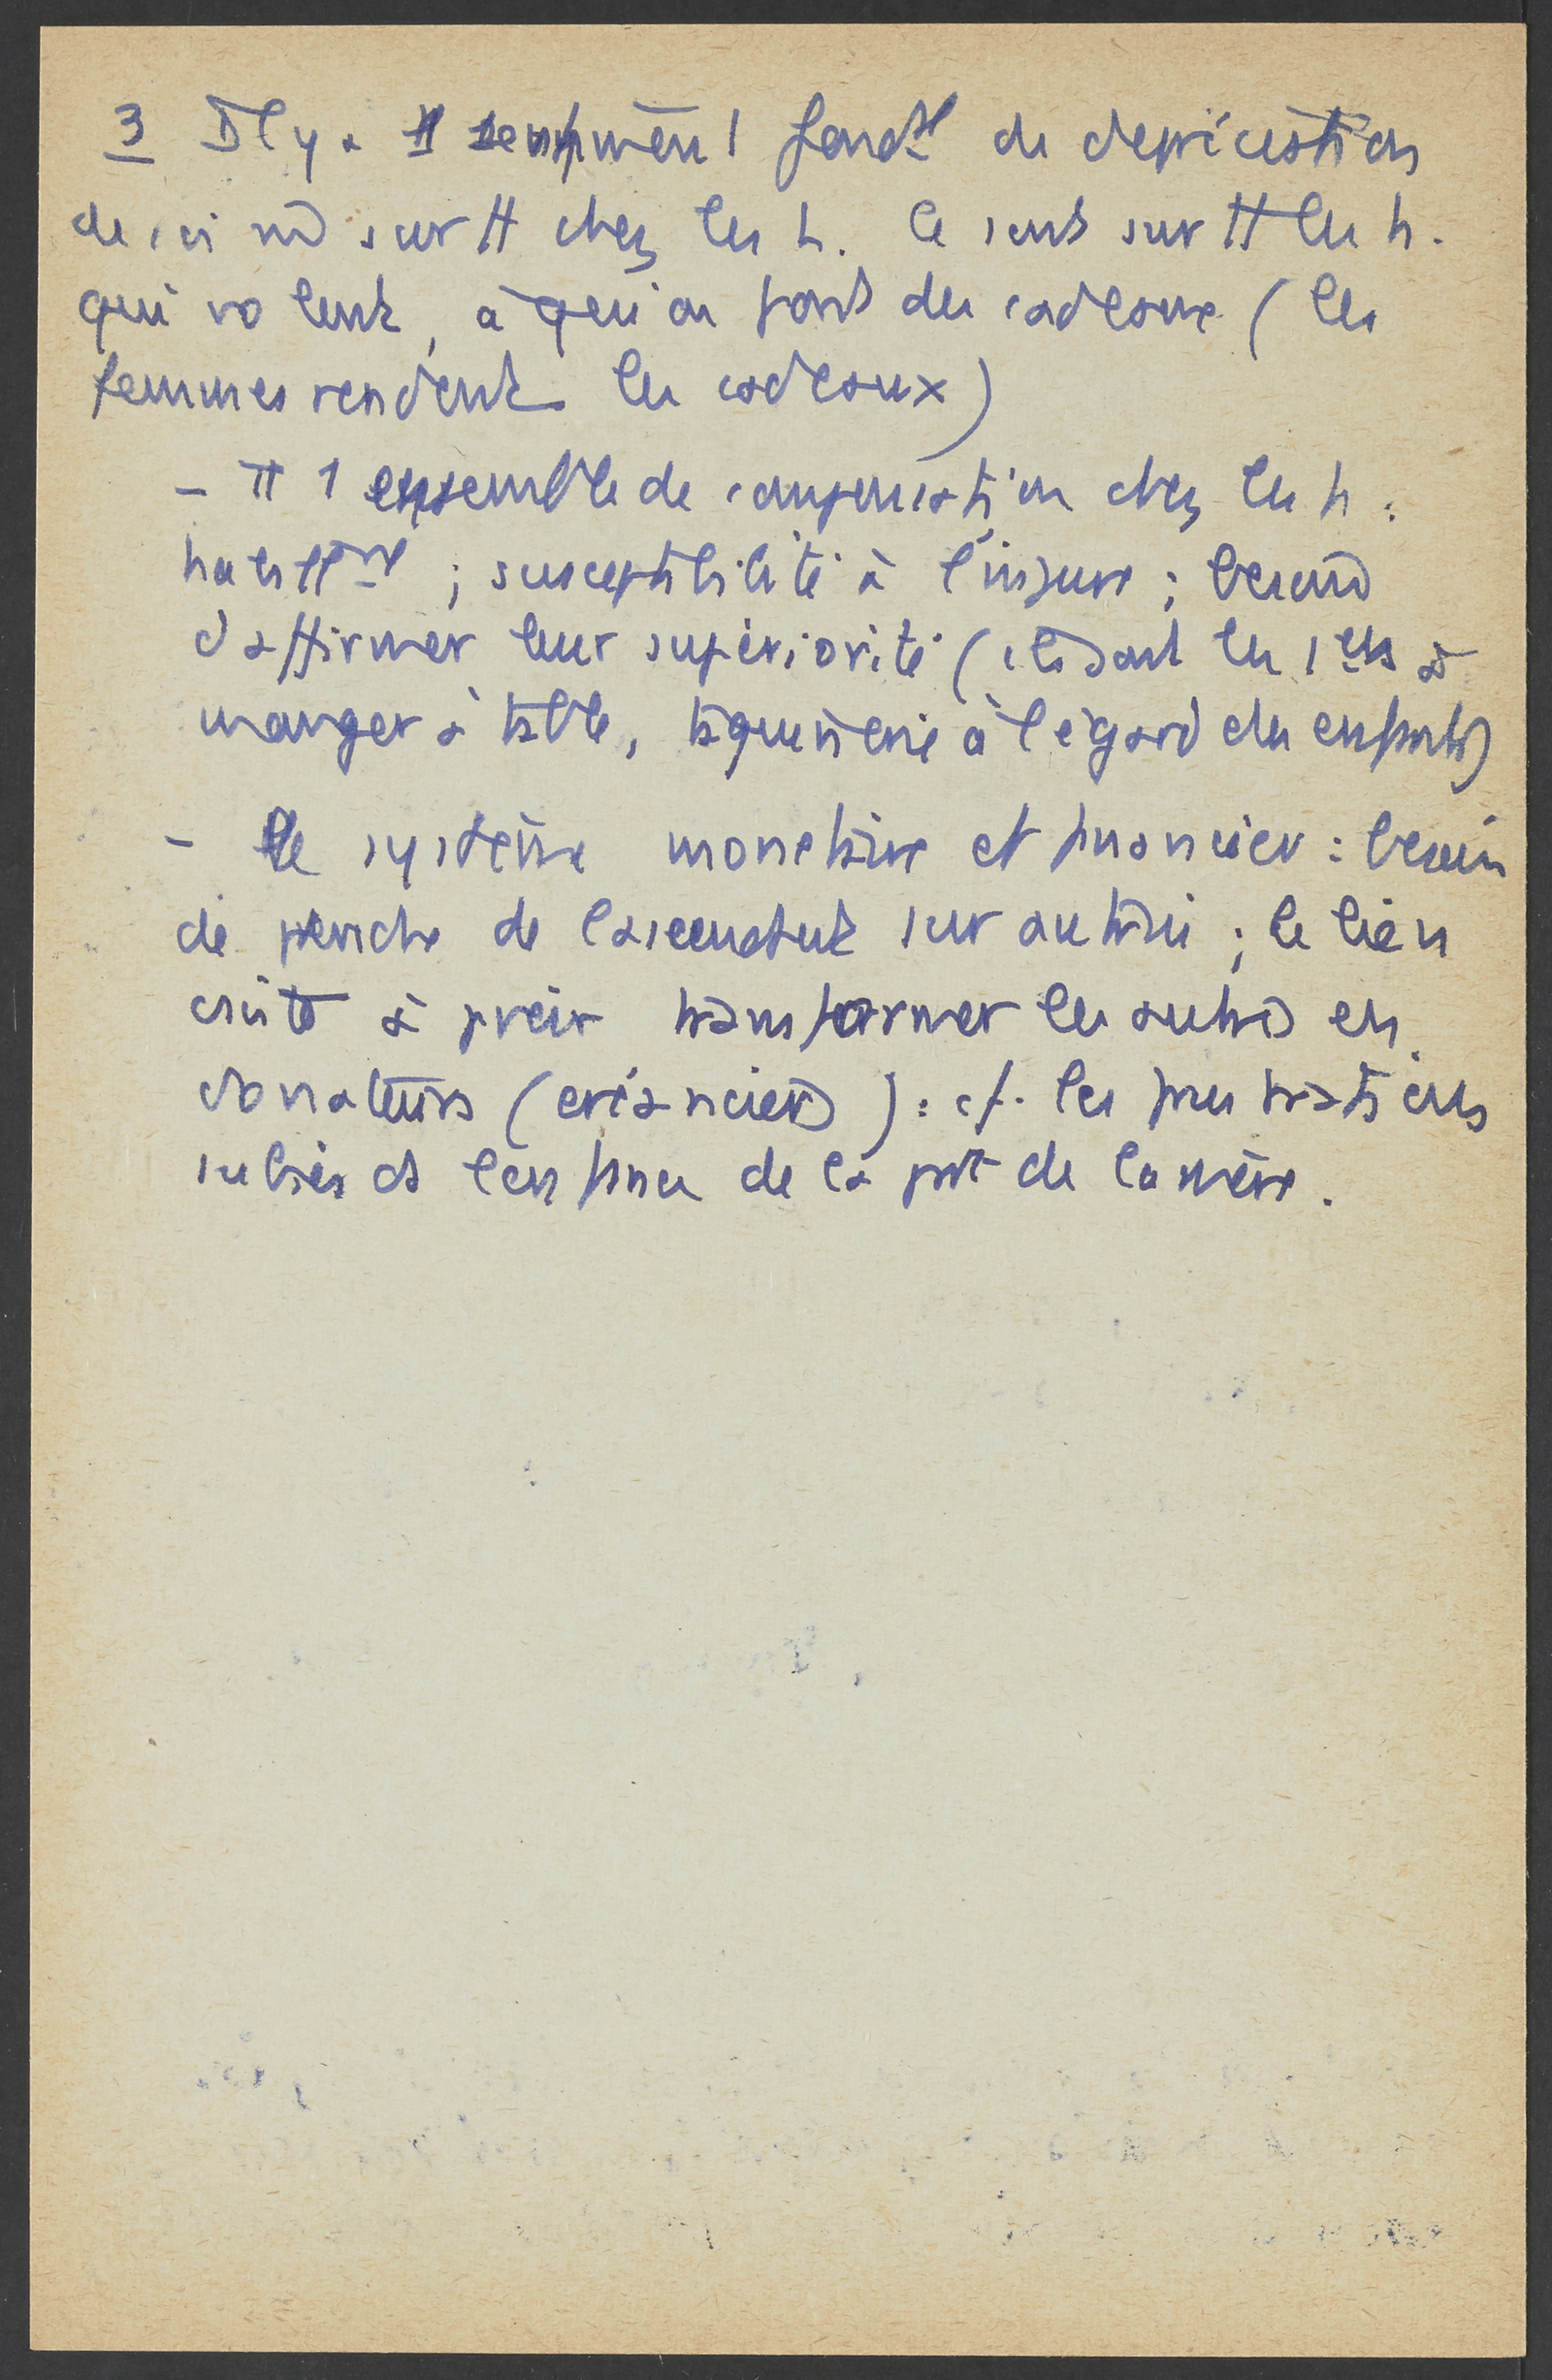 3 Il y a 1 sentiment fondal de dépréciation
de soi nd surtt chez les h. Ce sont surtt les h.
qui volent, à qui on fait des cadeaux (les
femmes rendent les cadeaux)
- Tt 1 ensemble de compensation chez les h :
; susceptibilité à l'injure ; besoin
d'affirmer leur supériorité (ils sont les 1ers à
manger à table, taquinerie à l'égard des enfants)
- le système monétaire et financier : besoin
de prendre de l'ascendant sur autrui ; le lien
à transformer les autres en
donateurs (créanciers) : cf. les frustrations
subies ds l'enfance de la part de la mère.